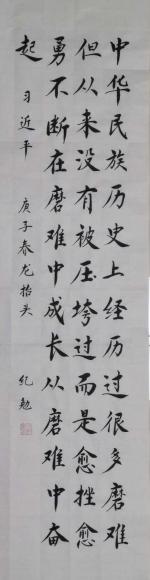 中华民族历史上经历过很多磨难
但从来没有被压垮过而是愈挫愈
勇不断在磨难中成长从磨难中奋
起 习近平 庚子春龙抬头 纪勉